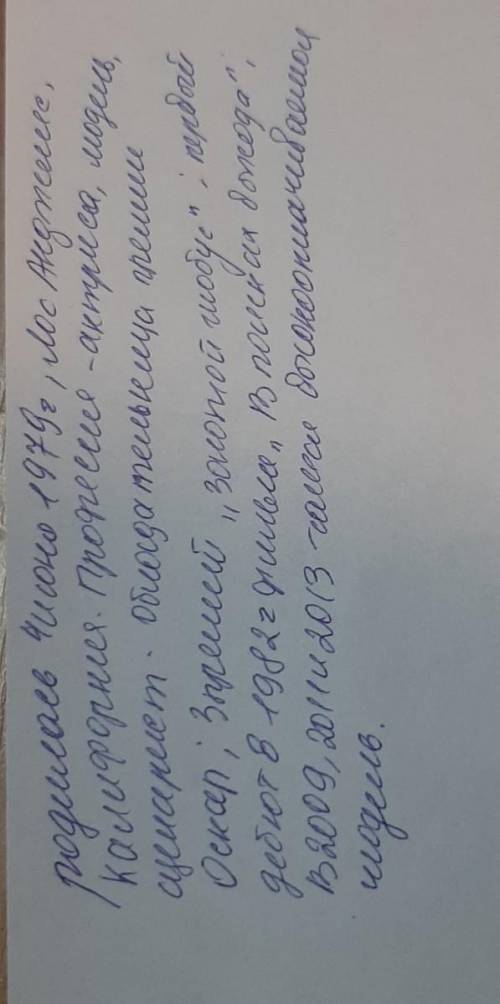 родилась 4июня 1979г, Лос Анджелес,
Калифорния. Профессия - актриса, модель,
сценарист. Обладательница премии
Оскар, 3 премий "Золотой глобус", первый
дебют в 1982г фильм "В поисках дождя",
в 2009, 2011 и 2013 - самая высокооплачиваемой
модель.